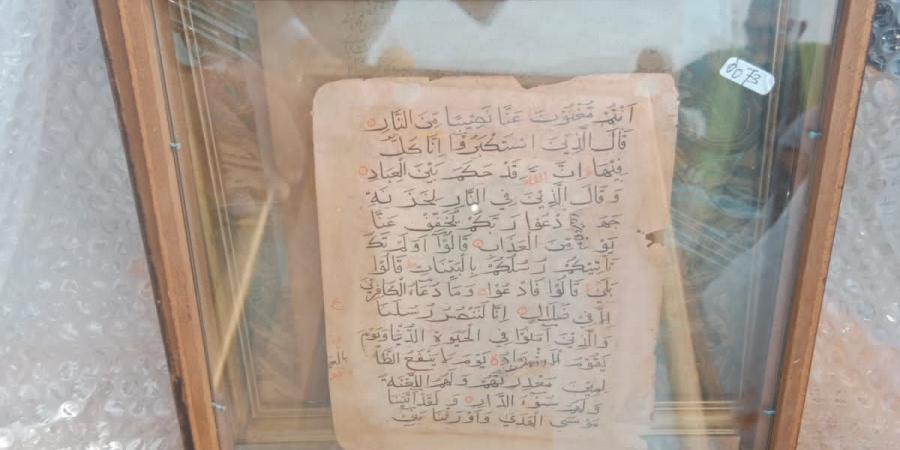 0073
اَنْتُمْ مُّغْنُوْنَ عَنَّا نَصِيْبًا مِّنَ النَّارِ
قَالَ الَّذِيْنَ اسْتَكْبَرُوْا اِنَّا كُلٌّ
فِيْهَا اِنَّ اللّٰهَ قَدْ حَكَمَ بَيْنَ الْعِبَادِ
وَقَالَ الَّذِيْنَ فِي النَّارِ لِخَزَنَةِ
جَهَنَّمَ ادْعُوْا رَبَّكُمْ يُخَفِّفْ عَنَّا
يَوْمًا مِّنَ الْعَذَابِ قَالُوْا اَوَلَمْ تَكُ
تَأْتِيْكُمْ رُسُلُكُمْ بِالْبَيِّنَاتِ قَالُوْا
بَلَى قَالُوْا فَادْعُوْا وَمَا دُعَاءُ الْكَافِرِيْنَ
اِلَّا فِيْ ضَلَالٍ اِنَّا لَنَنْصُرُ رُسُلَنَا
وَالَّذِيْنَ آمَنُوْا فِي الْحَيٰوةِ الدُّنْيَا وَيَوْمَ
يَقُوْمُ الْاَشْهَادُ يَوْمَ لَا يَنْفَعُ الظَّا
لِمِيْنَ مَعْذِرَتُهُمْ وَلَهُمُ اللَّعْنَةُ
وَلَهُمْ سُوْءُ الدَّارِ وَلَقَدْ آتَيْنَا
مُوْسَى الْهُدَي وَاَوْرَثْنَا بَنِيْ